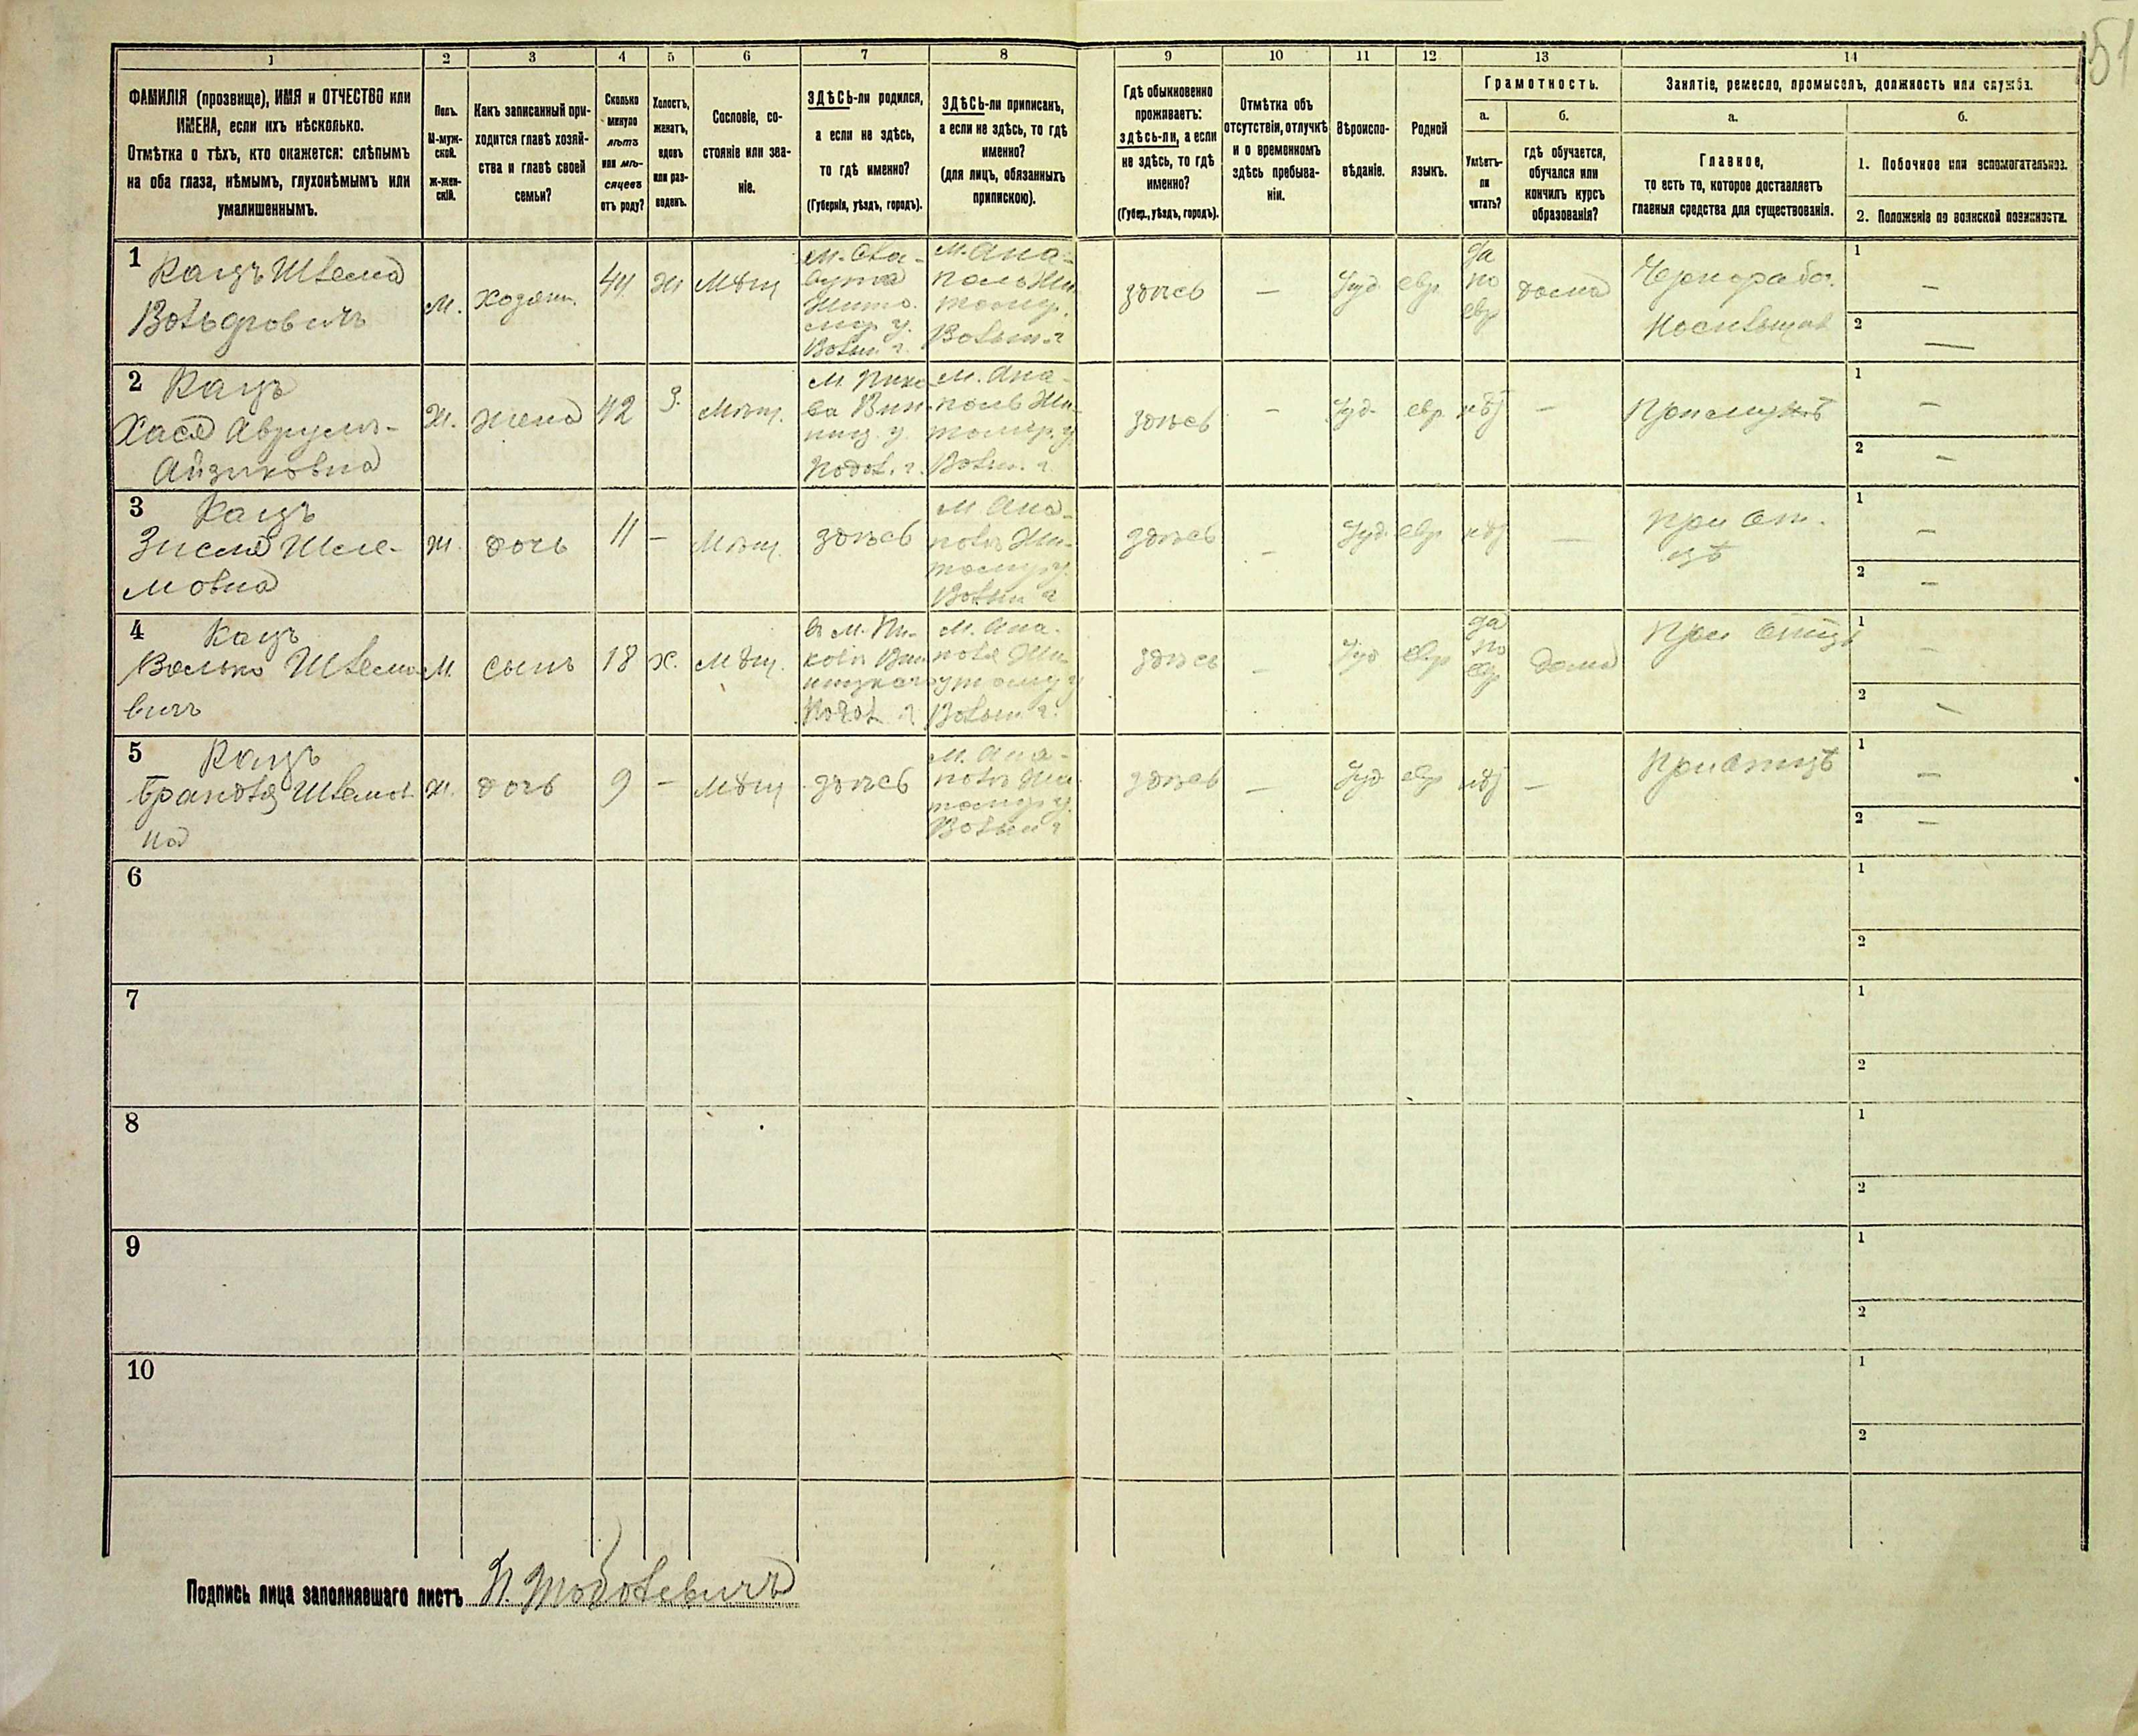 51
1 2 3 4 5 6 7 8 9 10 11 12 13 14
ФАМИЛІЯ (прозвище), ИМЯ и ОТЧЕСТВО или
ИМЕНА, если ихъ нѣсколько.
Отмѣтка о тѣхъ, кто окажется: слѣпымъ
на оба глаза, нѣмымъ, глухонѣмымъ или
умалишеннымъ.
Полъ.
М-муж-
ской.
Ж-жен-
скій.
Какъ записанный при-
ходится главѣ хозяй-
ства и главѣ своей
семьи?
Сколько
минуло
лѣтъ
или мѣ-
сяцевъ
отъ роду?
Холостъ,
женатъ,
вдовъ
или раз-
веденъ.
Сословіе, со-
стояніе или зва-
ніе.
ЗДѢСЬ-ли родился,
а если не здѣсь,
то гдѣ именно?
(Губернія, уѣздъ, городъ).
ЗДѢСЬ-ли приписанъ,
а если не здѣсь, то гдѣ
именно?
(для лицъ, обязанныхъ
припискою).
Гдѣ обыкновенно
проживаетъ:
здѣсь-ли, а если
не здѣсь, то гдѣ
именно?
(Губер., уѣздъ, городъ).
Отмѣтка объ
отсутствіи, отлучкѣ
и о временномъ
здѣсь пребыва-
ніи.
Вѣроиспо-
вѣданіе.
Родной
языкъ.
Грамотность.
а.
Умѣетъ-
ли
читать?
б.
гдѣ обучается,
обучался или
кончилъ курсъ
образованія?
Занятіе, ремесло, промыселъ, должность или служба.
а.
Главное,
то есть то, которое доставляетъ
главныя средства для существованія.
б.
1. Побочное или вспомогательное.
2. Положеніе по воинской повинности.
1
Кацъ Шлема
Вольфовичъ
м.
хозяин.
44
ж
мѣщ
м. Сла-
вута
Жито-
мир у.
Волын. г.
м. Ана-
поль Жи-
томир.
Волын г
здѣсь
—
Іуд.
евр
да
по
евр
дома
Чернорабоч.
Носильщик
1 —
2 —
2
Кацъ
Хася Аврумъ-
Айзиковна
ж.
жена
42
З.
мѣщ.
м. Пико
ва Вин-
ниц. у.
Подол. г.
м. Ана-
поль Жи-
томир. у
Волын. г.
здѣсь
—
Іуд.
евр
нѣт
—
При мужѣ
1 —
2 —
3
Кацъ
Зисля Шле-
мовна
ж.
дочь
11
—
мѣщ.
здѣсь
м Ана-
поль Жи-
томир у.
Волын г
здѣсь
—
Іуд.
евр
нѣт
—
при от-
цѣ
1 —
2 —
4
Кацъ
Волько Шлемо
вичъ
м.
сынъ
18
х.
мѣщ.
в м. Пи-
ковѣ Вин
ницкаго у
Подол г
м. Ана-
поль Жи
томир у
Волын г.
здѣсь
—
Іуд
евр
да
по
евр
дома
при отцѣ
1 —
2 —
5
Кацъ
Брандля Шлемов
на
ж.
дочь
9
—
мѣщ
здѣсь
м. Ана-
поль Жи-
томир у.
Волын г
здѣсь
—
Іуд
евр
нѣт
—
При отцѣ
1 —
2 —
6
1
2
7
1
2
8
1
2
9
1
2
10
1
2
Подпись лица заполнявшаго листъ